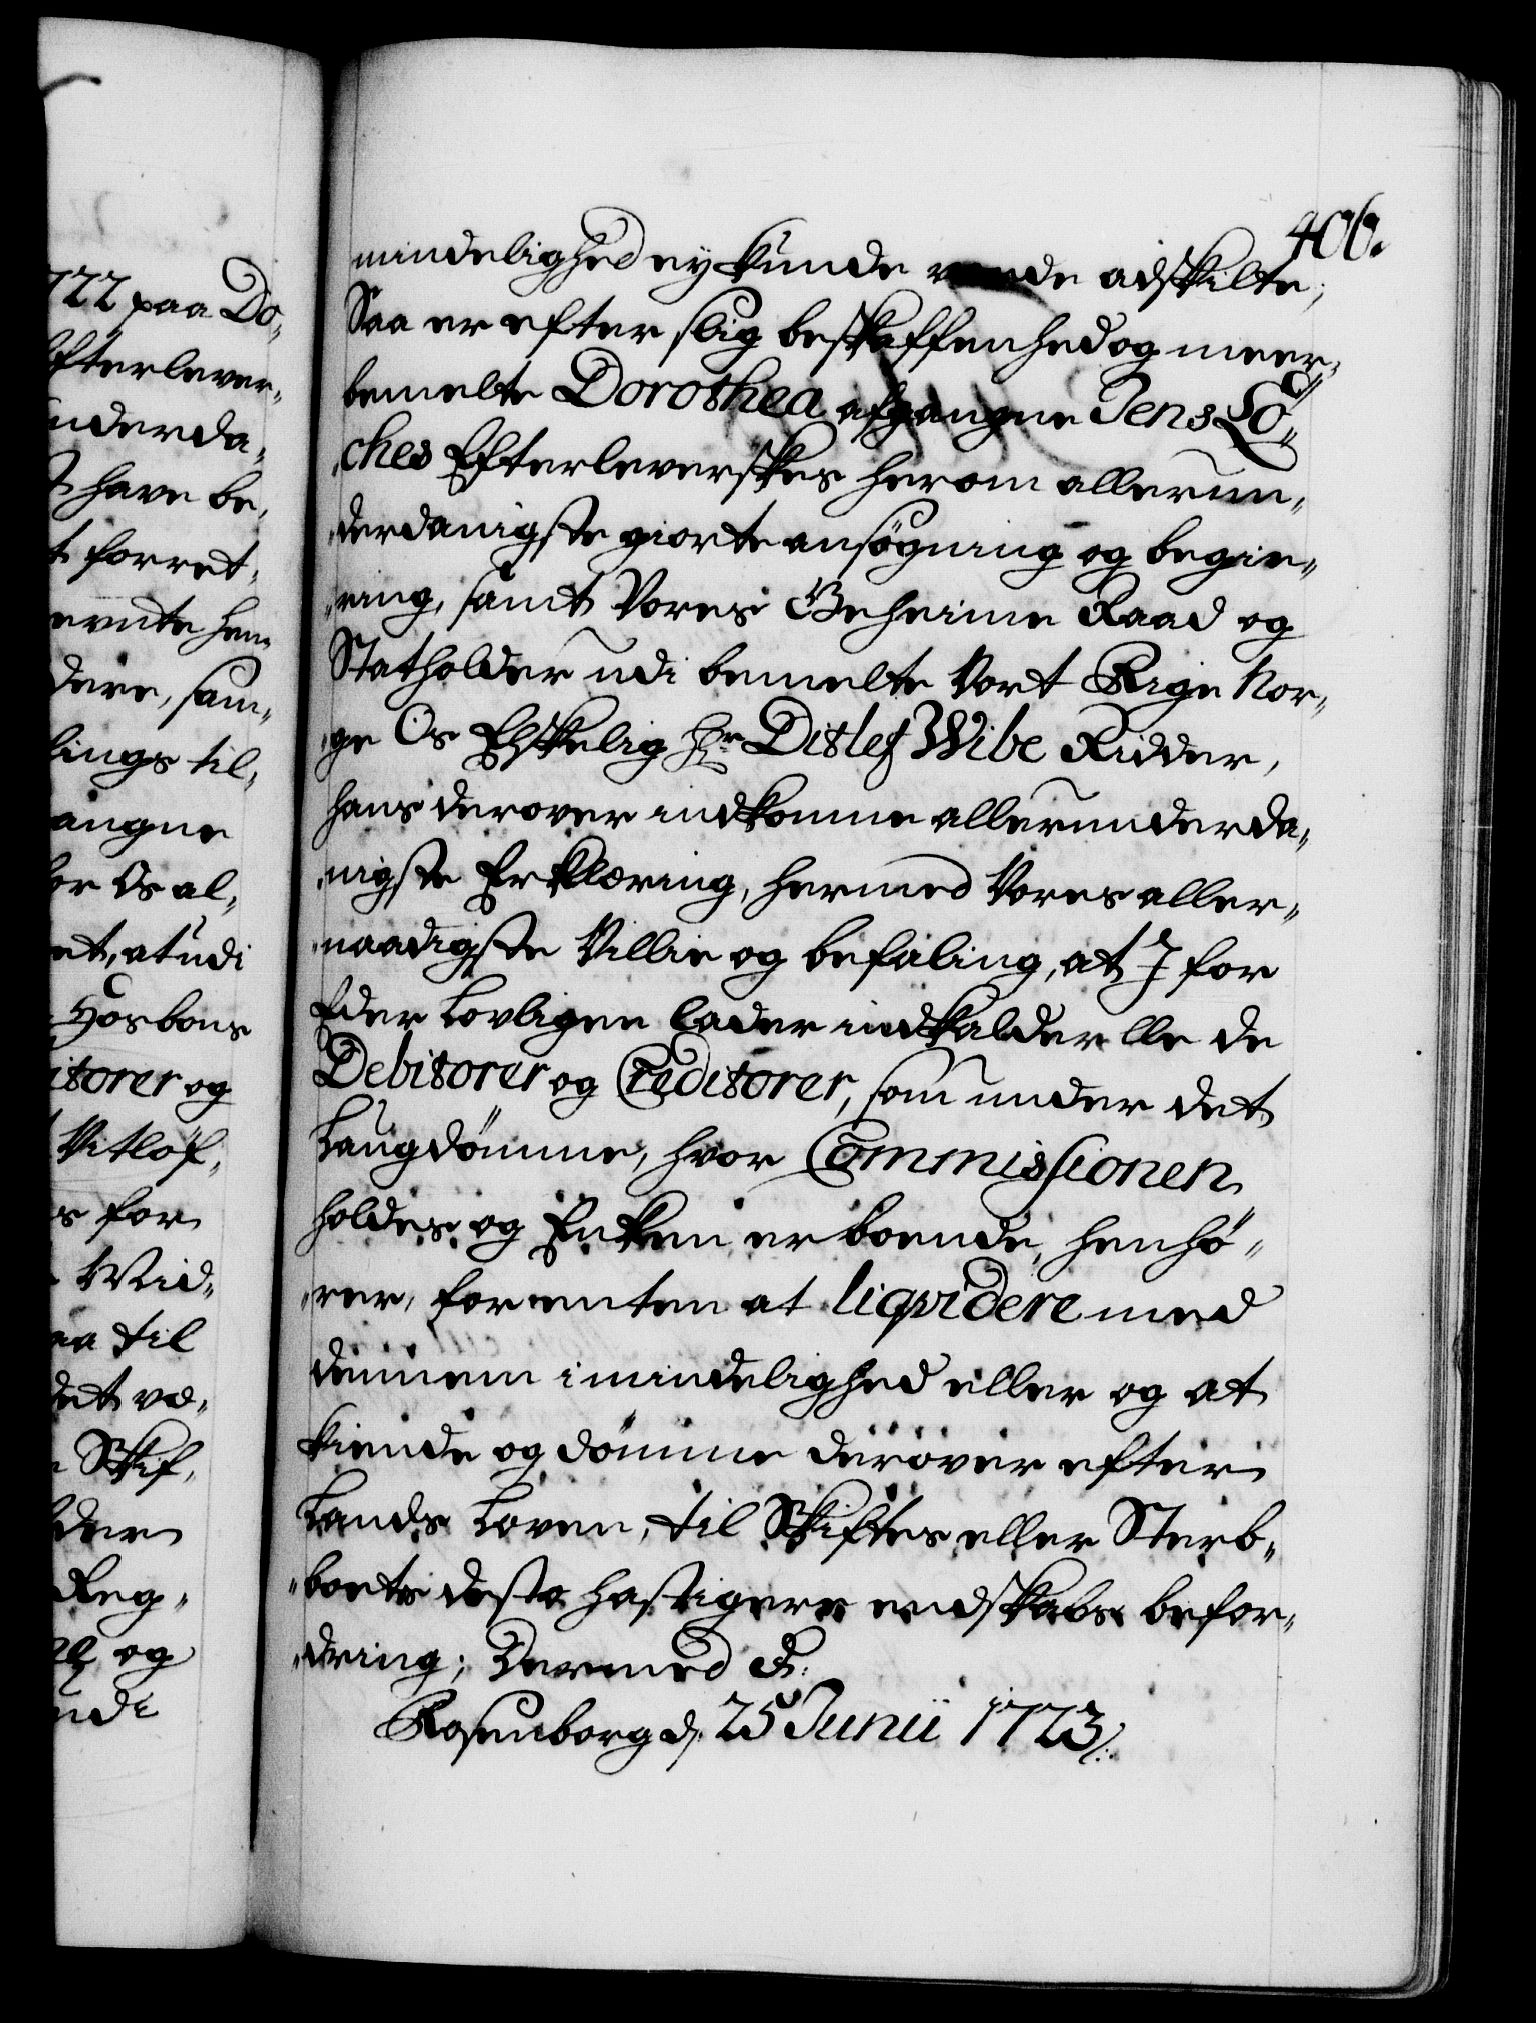 406.
mindelighed ey kunde vende adskilte;
Saa er efter slig beskaffenhed og meer„
bemelte Dorothea afgangne Jens Lö„
„ches Efterleverskes herom allerun„
„derdanigste giorte ansögning og begie„
„ring, samt Vores Geheime Raad og
Statholder udi bemelte Vort Rige Nor„
„ge Os Elskelig Hr Ditlef Wibe Ridder,
hans derover indkomne allerunderda„
„nigste Erklæring, hermed Vores aller„
„naadigste Villie og befaling, at I for
Eder Lovligen lader indkalde alle de
Debitorer og Creditorer, som under det
Laugdömme, hvor Commissionen
holdes og Enken er boende, henhö„
„rer, for enten at liqvidere med
dennem i mindelighed eller og at
kiende og dömme derover efter
Lands Loven, til Skiftes eller Sterb„
„boets desto hastigere endskabs befor„
„dring; Dermed &:
Rosenborg d: 25 Junii 1723/:
722 paa Do„
fterlever„
nderda„
have be„
forret„
dere, sam„
lings til„
angne
or Os al„
et, at udi
Hosbons
itorer og
Vitlöf„
for
Mid„
aa til
det væ„
Skif„
der
Reg„
og
udi